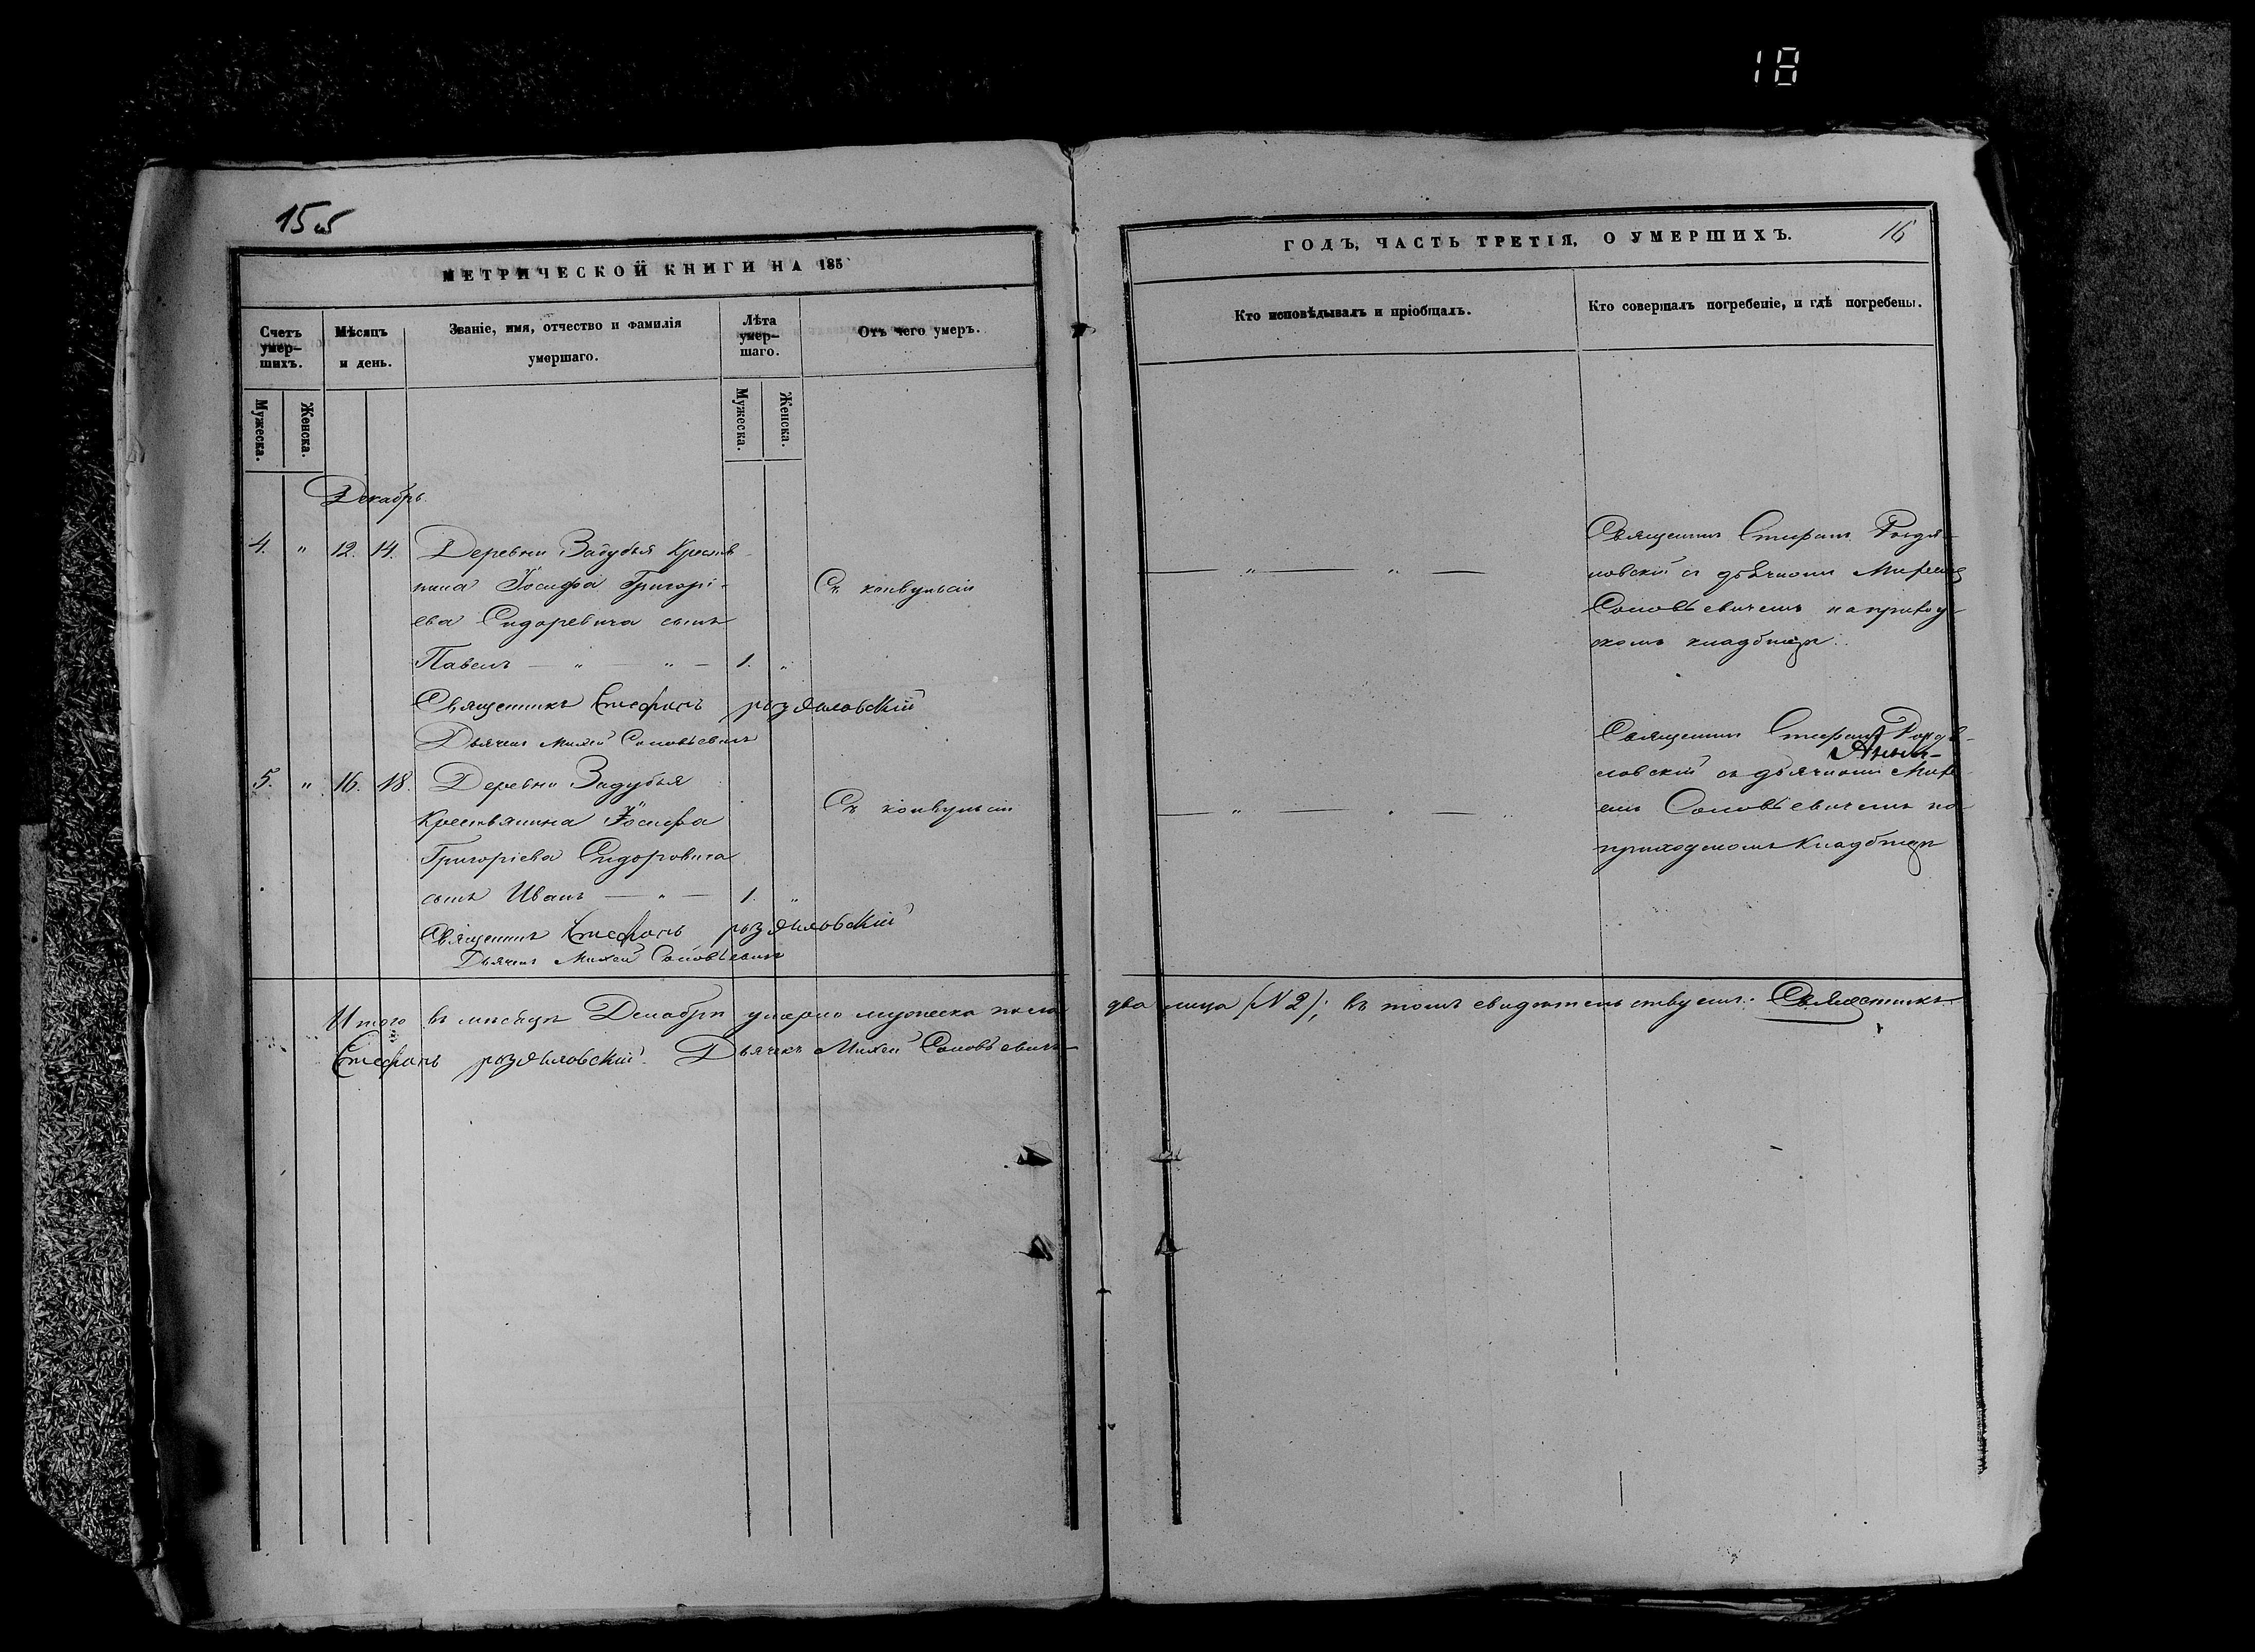 18
15 об
МЕТРИЧЕСКОЙ КНИГИ НА 185
Счетъ умер-шихъ.
Мѣсяцъ и день.
Званіе, имя, отчество и фамилія умершаго.
Лѣта умер-шаго.
Отъ чего умеръ.
Мужеска.
Женска.
Мужеска.
Женска.
Декабрь.
4. " 12. 14. Деревни Задубья Крестья-
нина Іосифа Григорі-
ева Сидоревича сынъ
Павелъ — " — " — 1. "
Съ конвульсіи
Священникъ Стефанъ
Дьячекъ Михей Соловьевичъ
5. " 16. 18. Деревни Задубья
Крестьянина Іосифа
Григоріева Сидоровича
сынъ Иванъ — " — 1. "
Съ конвульсіи
Священникъ Стефанъ
Дьячекъ Михей Соловьевичъ
Итого въ мѣсяцѣ Декабрѣ умерло мужеска пола
Стефанъ Дьячекъ Михей Соловьевичъ
ГОДЪ, ЧАСТЬ ТРЕТІЯ, О УМЕРШИХЪ.
16
Кто исповѣдывалъ и пріобщалъ.
Кто совершалъ погребеніе, и гдѣ погребены.
Священникъ Стефанъ
ловскій съ дьячкомъ
Соловьевичемъ на приход-
скомъ кладбищѣ.
Священникъ Стефанъ
ловскій съ дьячкомъ
Соловьевичемъ на
приходскомъ кладбищѣ
два лица (N 2); въ томъ свидѣтельствуемъ: Священникъ